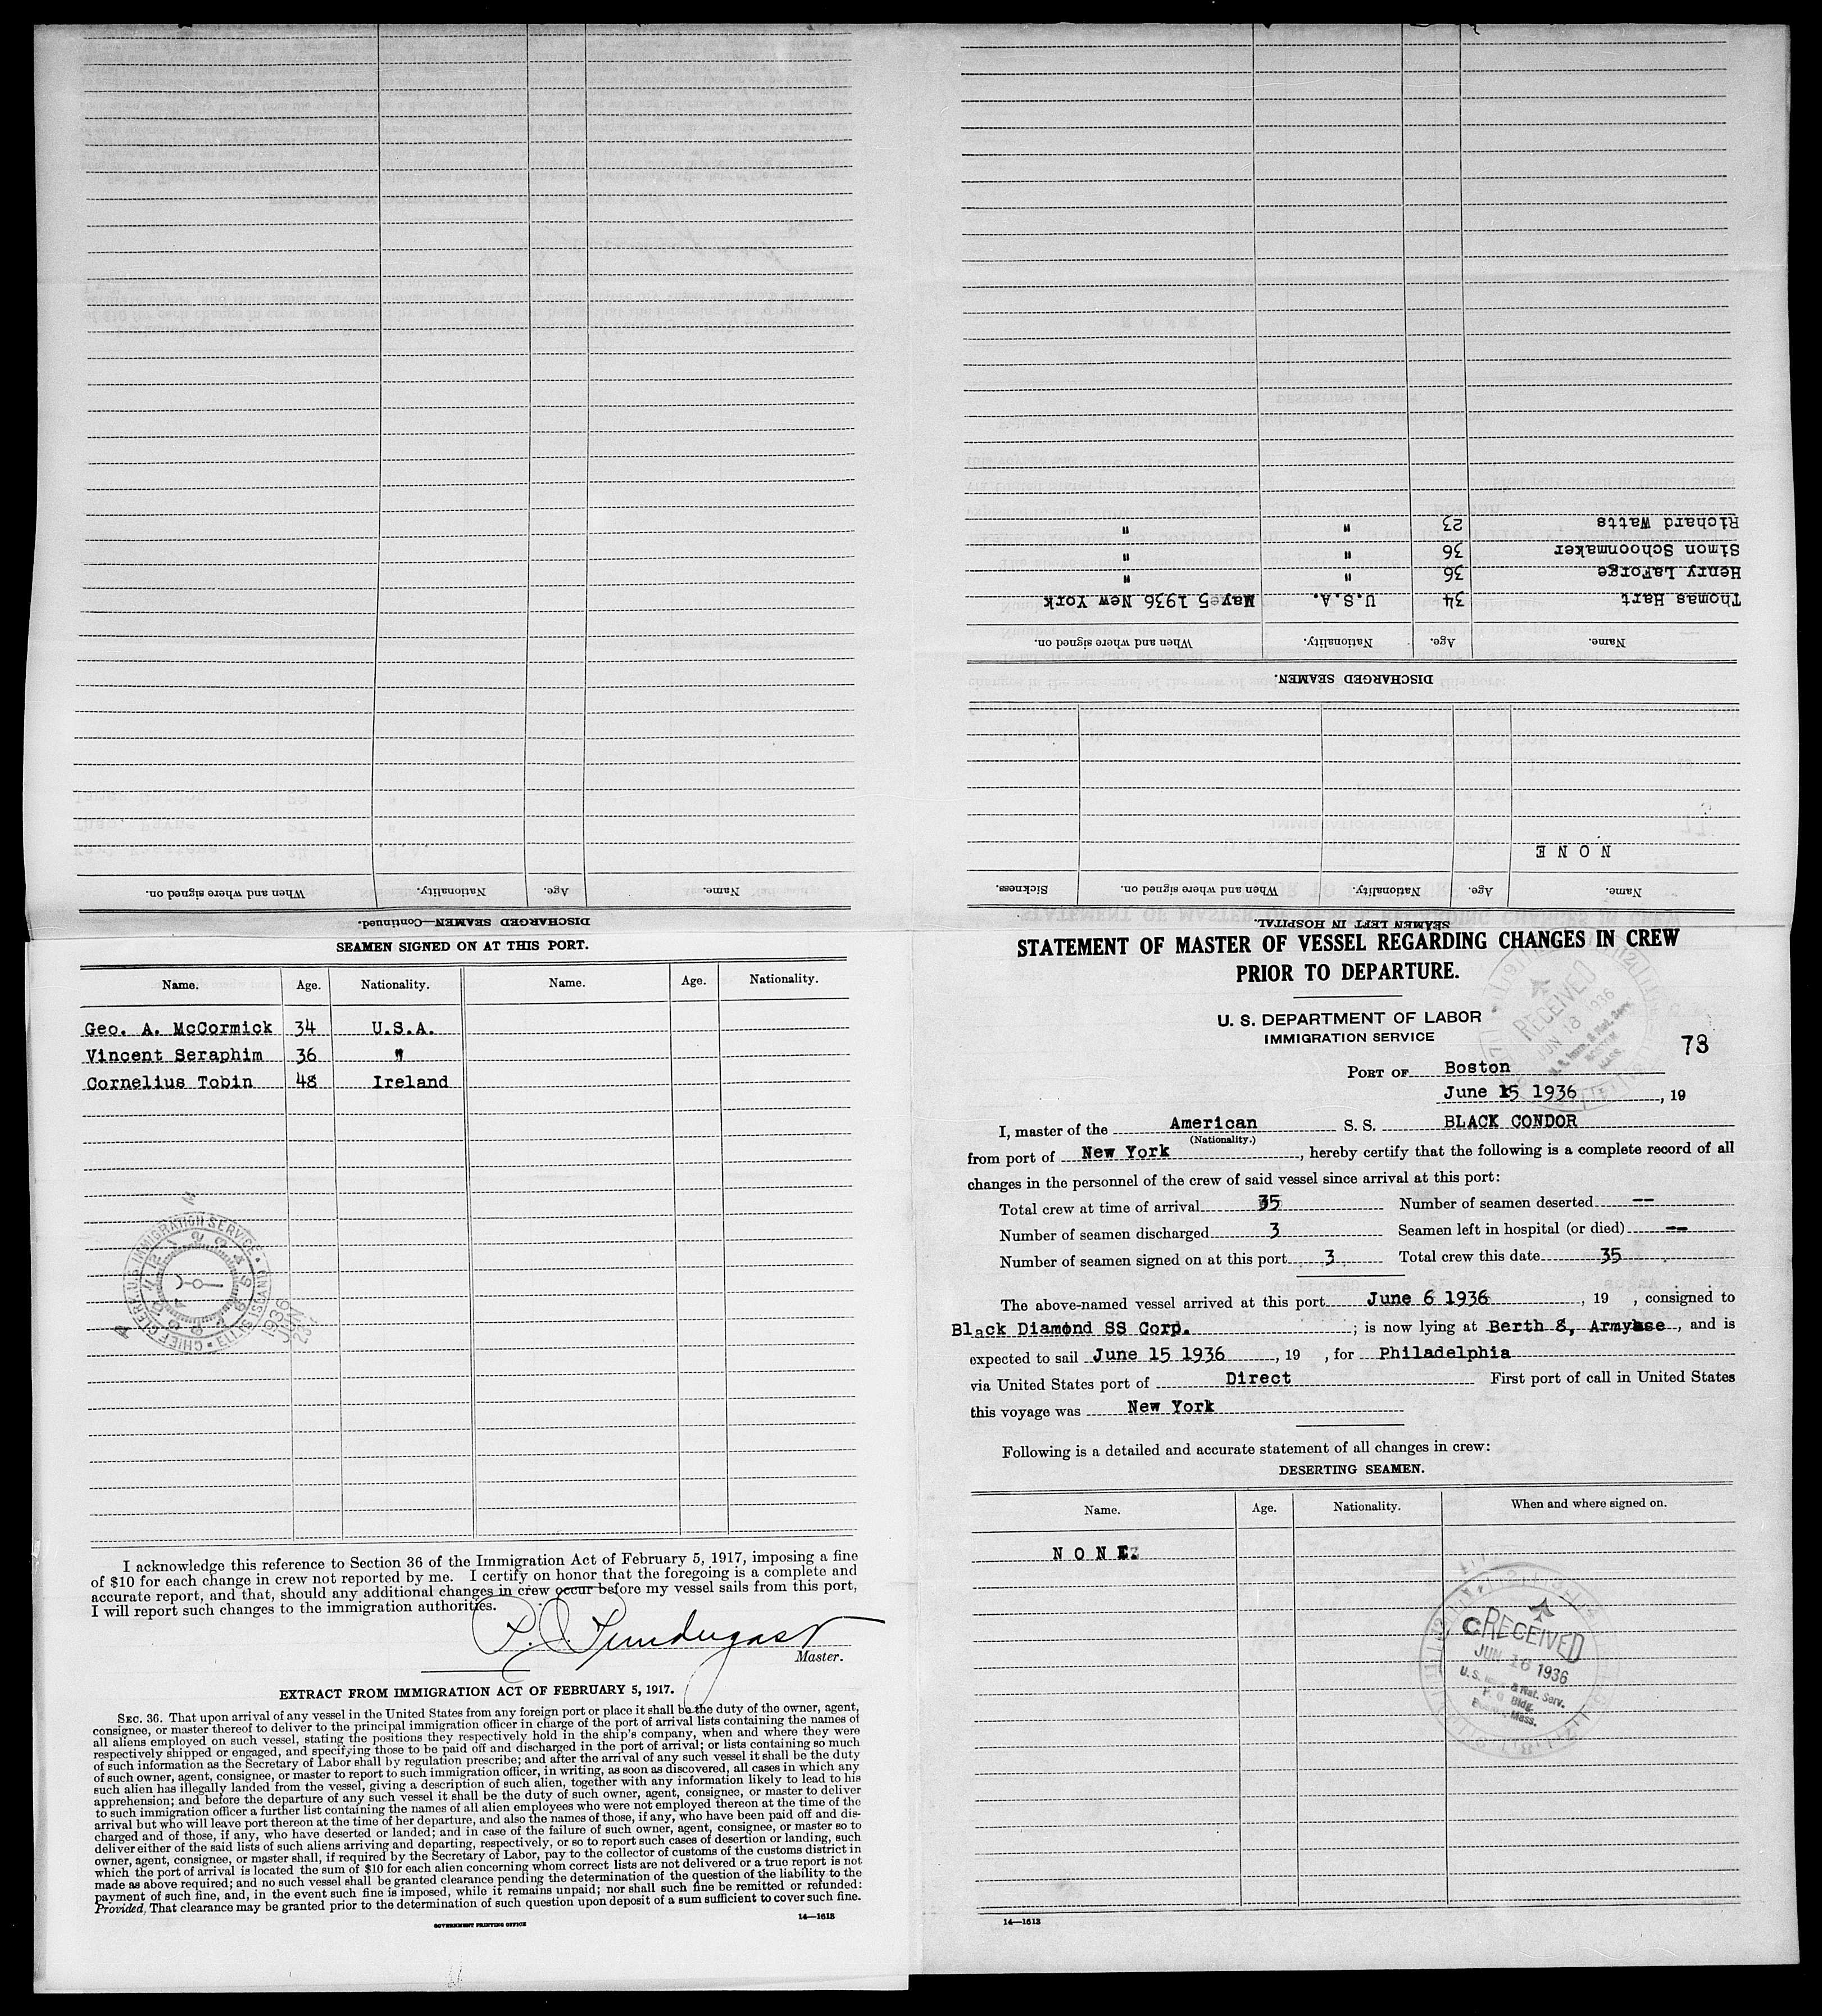 STATEMENT OF MASTER OF VESSEL REGARDING CHANGES IN CREW
PRIOR TO DEPARTURE.
U. S. DEPARTMENT OF LABOR
IMMIGRATION SERVICE
73
PORT OF Boston
June 15 1936, 19
I, master of the American S. S. BLACK CONDOR
(Nationality.)
from port of New York, hereby certify that the following is a complete record of all
changes in the personnel of the crew of said vessel since arrival at this port:
Total crew at time of arrival 35 Number of seamen deserted --
Number of seamen discharged 3 Seamen left in hospital (or died) --
Number of seamen signed on at this port 3 Total crew this date 35
The above-named vessel arrived at this port June 6 1936, 19 , consigned to
Black Diamond SS Corp. ; is now lying at Berth 8, Armybase, and is
expected to sail June 15 1936, 19 , for Philadelphia
via United States port of Direct First port of call in United States
this voyage was New York
Following is a detailed and accurate statement of all changes in crew:
DESERTING SEAMEN.
Name. Age. Nationality. When and where signed on.
NONE
RECEIVED
JUN 16 1936
14—1613
SEAMEN LEFT IN HOSPITAL.
Name. Age. Nationality. When and where signed on. Sickness.
NONE
DISCHARGED SEAMEN.
Name. Age. Nationality. When and where signed on.
Thomas Hart 34 U.S.A. May 5 1936 New York
Henry LaForge 36 " "
Simon Schoonmaker 36 " "
Richard Watts 23 " "
DISCHARGED SEAMEN—Continued.
Name. Age. Nationality. When and where signed on.
SEAMEN SIGNED ON AT THIS PORT.
Name. Age. Nationality. Name. Age. Nationality.
Geo. A. McCormick 34 U.S.A.
Vincent Seraphim 36 "
Cornelius Tobin 48 Ireland
I acknowledge this reference to Section 36 of the Immigration Act of February 5, 1917, imposing a fine
of $10 for each change in crew not reported by me. I certify on honor that the foregoing is a complete and
accurate report, and that, should any additional changes in crew occur before my vessel sails from this port,
I will report such changes to the immigration authorities.
Master.
EXTRACT FROM IMMIGRATION ACT OF FEBRUARY 5, 1917.
SEC. 36. That upon arrival of any vessel in the United States from any foreign port or place it shall be the duty of the owner, agent,
consignee, or master thereof to deliver to the principal immigration officer in charge of the port of arrival lists containing the names of
all aliens employed on such vessel, stating the positions they respectively hold in the ship's company, when and where they were
respectively shipped or engaged, and specifying those to be paid off and discharged in the port of arrival; or lists containing so much
of such information as the Secretary of Labor shall by regulation prescribe; and after the arrival of any such vessel it shall be the duty
of such owner, agent, consignee, or master to report to such immigration officer, in writing, as soon as discovered, all cases in which any
such alien has illegally landed from the vessel, giving a description of such alien, together with any information likely to lead to his
apprehension; and before the departure of any such vessel it shall be the duty of such owner, agent, consignee, or master to deliver
to such immigration officer a further list containing the names of all alien employees who were not employed thereon at the time of the
arrival but who will leave port thereon at the time of her departure, and also the names of those, if any, who have been paid off and dis-
charged and of those, if any, who have deserted or landed; and in case of the failure of such owner, agent, consignee, or master so to
deliver either of the said lists of such aliens arriving and departing, respectively, or so to report such cases of desertion or landing, such
owner, agent, consignee, or master shall, if required by the Secretary of Labor, pay to the collector of customs of the customs district in
which the port of arrival is located the sum of $10 for each alien concerning whom correct lists are not delivered or a true report is not
made as above required; and no such vessel shall be granted clearance pending the determination of the question of the liability to the
payment of such fine, and, in the event such fine is imposed, while it remains unpaid; nor shall such fine be remitted or refunded:
Provided, That clearance may be granted prior to the determination of such question upon deposit of a sum sufficient to cover such fine.
GOVERNMENT PRINTING OFFICE
14—1613